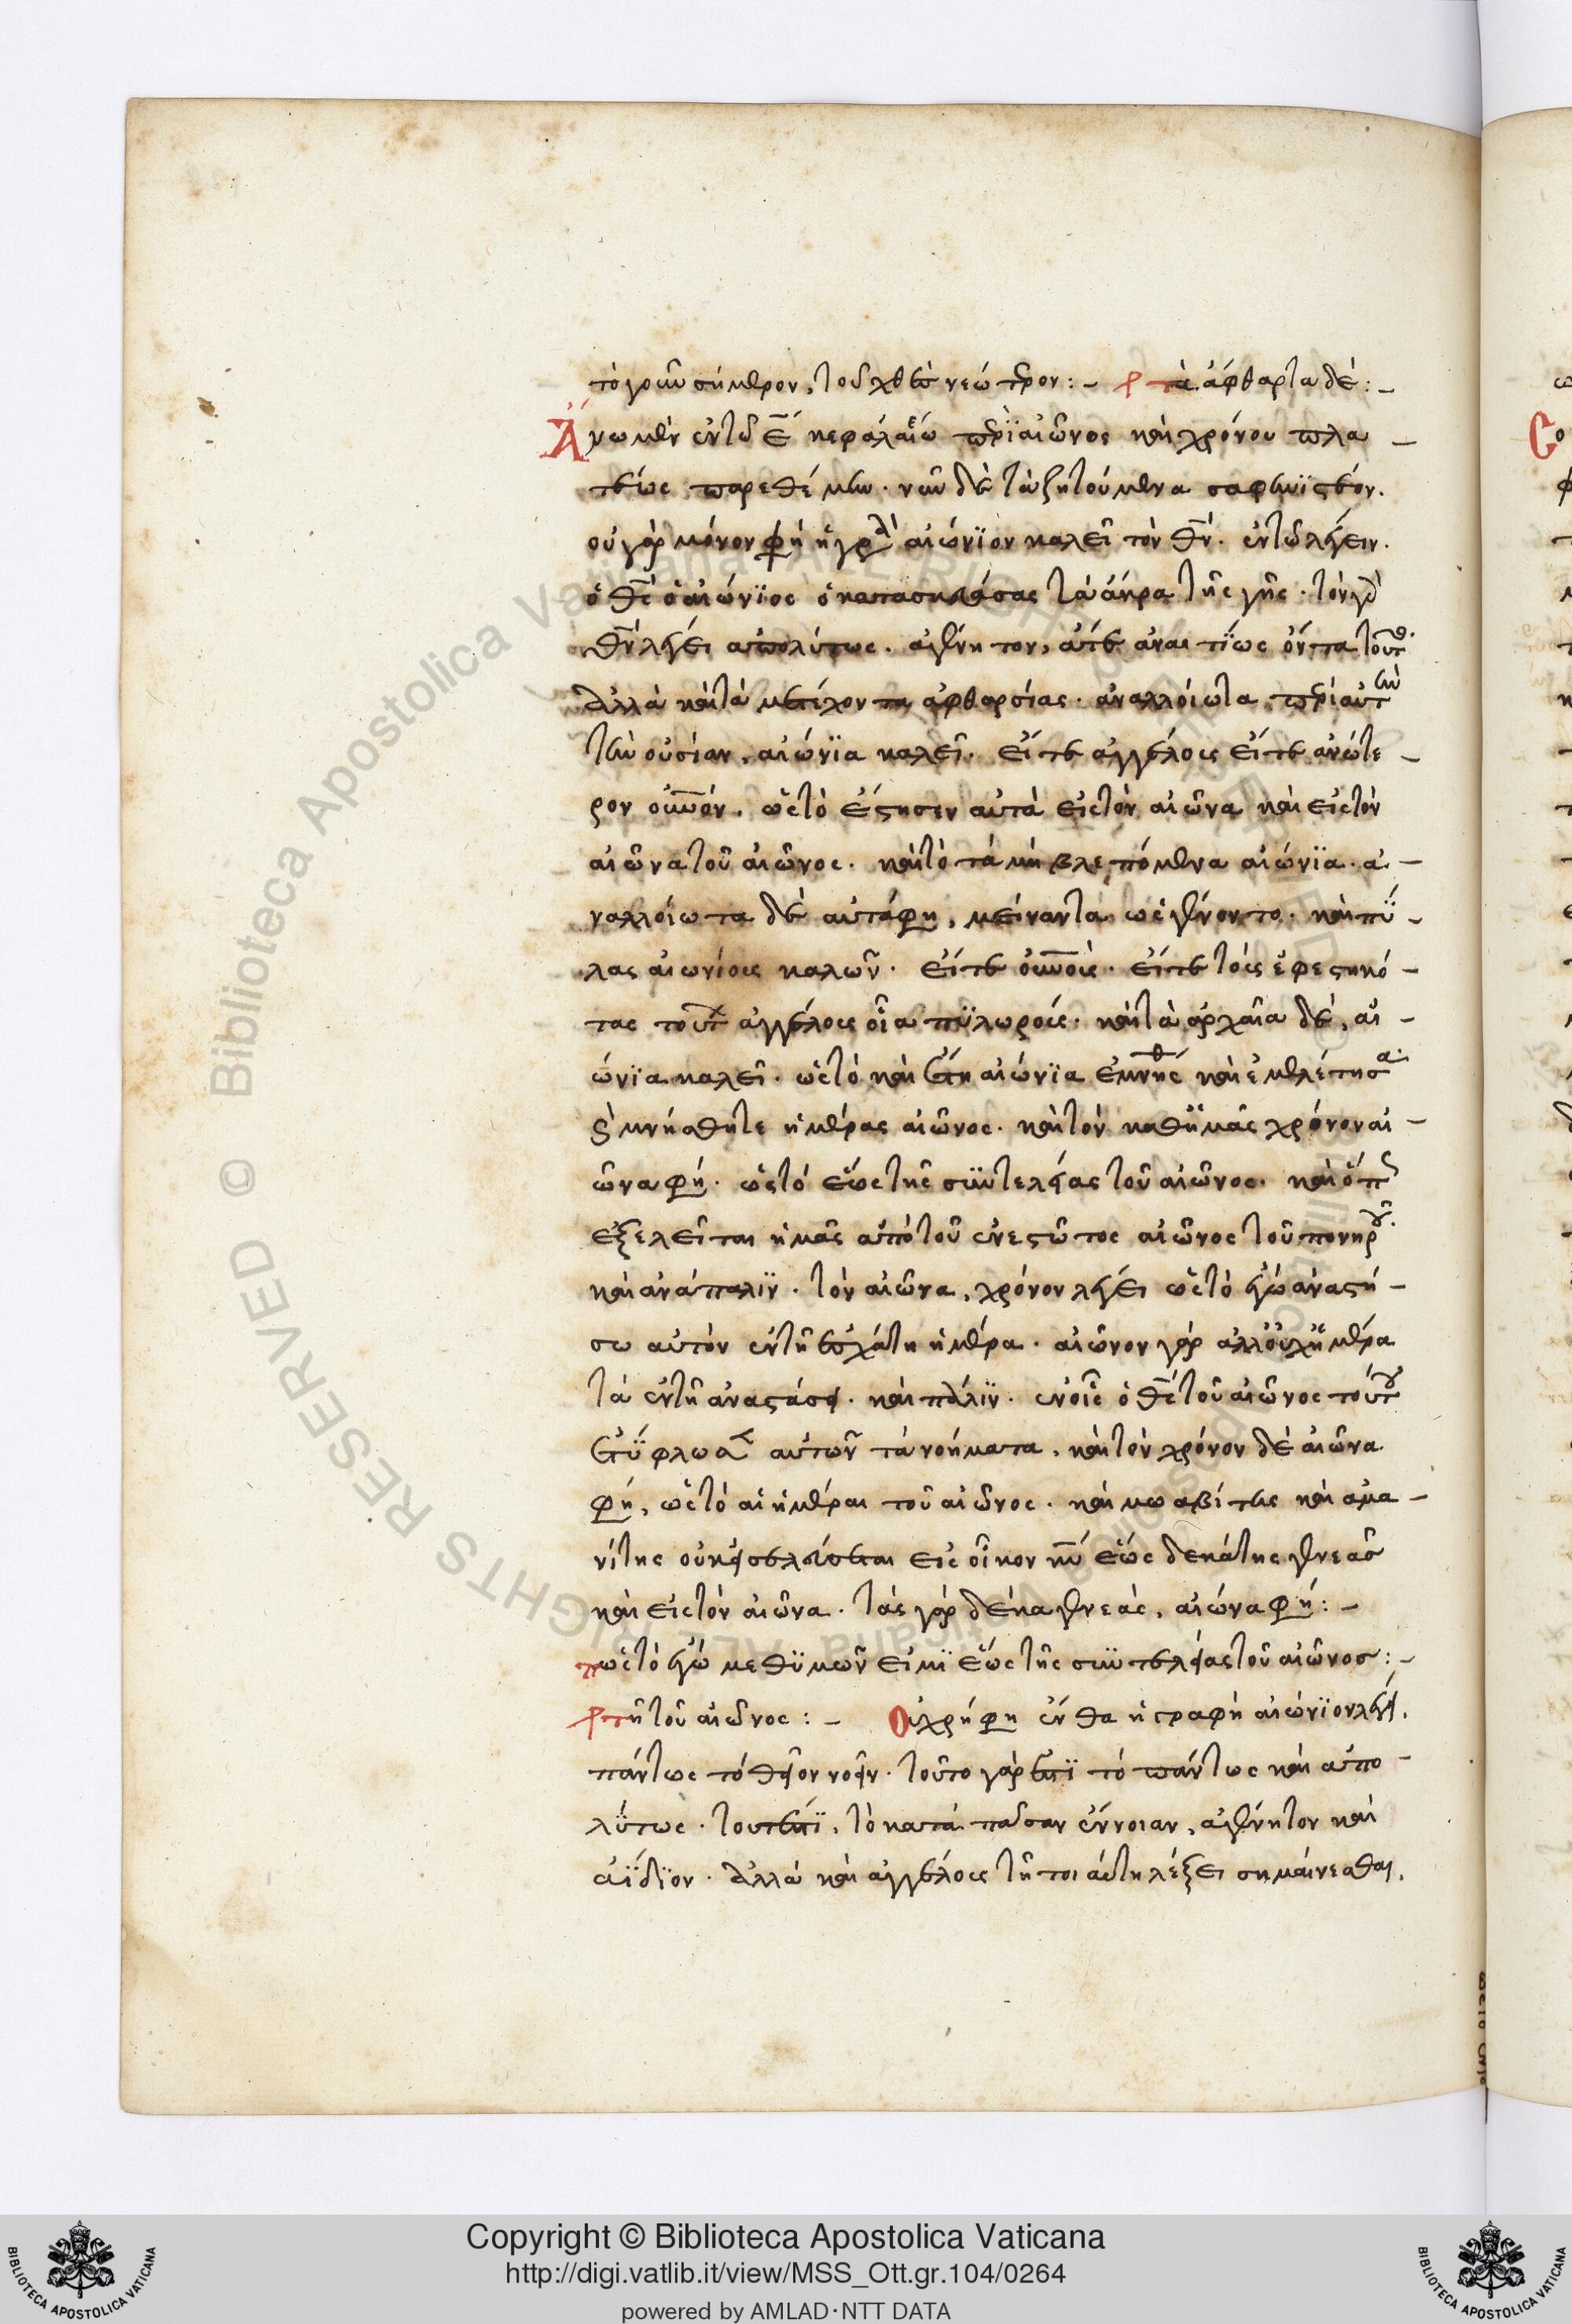 τὸ γοῦν σήμερον, τοῦ χθὲς νεώτερον:- τὰ ἄφθαρτα δὲ:-
Ἄνω μὲν ἐν τῷ ε κεφαλαίῳ περὶ αἰῶνος καὶ χρόνου πλα-
τέως παρεθέμην. νῦν δὲ τὰ ζητούμενα σαφηνιστέον.
οὐ γὰρ μόνον φη ἡ γραφὴ αἰώνιον καλεῖ τὸν θν. ἐν τῷ λέγειν.
ὁ θς ὁ αἰώνιος ὁ κατασκευάσας τὰ ἄκρα τῆς γῆς. τὸν γὰρ
θν λέγει ἀπολύτως. ἀγένητον, ἅτε ἀναιτίως ὄντα τοῦτον.
ἀλλὰ καὶ τὰ μετέχοντα ἀφθαρσίας. ἀναλλοίωτα περὶ αὐτὴν
τὴν οὐσίαν, αἰώνια καλεῖ. εἴτε ἀγγέλους εἴτε ἀνώτε-
ρον οὐνον. ὡς τὸ ἔστησεν αὐτὰ εἰς τὸν αἰῶνα καὶ εἰς τὸν
αἰῶνα τοῦ αἰῶνος. καὶ τὸ τὰ μὴ βλεπόμενα αἰώνια. ἀ-
ναλλοίωτα δὲ αὐτά φη, μείναντα ὡς ἐγένοντο. καὶ πύ-
λας αἰωνίους καλῶν. εἴτε οὐνους. εἴτε τοὺς ἐφεστηκό-
τας τούτοις ἀγγέλους οἷα πυλωρούς. καὶ τὰ ἀρχαῖα δὲ, αἰ-
ώνια καλεῖ. ὡς τὸ καὶ ἔτη αἰώνια ἐμνήσθην καὶ ἐμελέτησα.
καὶ μνήσθητε ἡμέρας αἰῶνος. καὶ τὸν καθ' ἡμᾶς χρόνον αἰ-
ῶνα φη. ὡς τό ἕως τῆς συντελείας τοῦ αἰῶνος. καὶ ὅπως
ἐξελεῖται ἡμᾶς ἀπὸ τοῦ ἐνεστῶτος αἰῶνος τοῦ πονηροῦ.
καὶ ἀνάπαλιν. τὸν αἰῶνα, χρόνον λέγει ὡς τὸ ἐγὼ ἀναστή-
σω αὐτὸν ἐν τῇ ἐσχάτῃ ἡμέρα. αἰῶνον γὰρ ἀλλ' οὐχ' ἡμέρα
τὰ ἐν τῇ ἀναστάσει. καὶ πάλιν. ἐν οἷς ὁ θς τοῦ αἰῶνος τούτου
ἐτύφλωσεν αὐτῶν τὰ νοήματα, καὶ τὸν χρόνον δὲ αἰῶνα
φη, ὡς τὸ αἱ ἡμέραι τοῦ αἰῶνος. καὶ μωαβίτης καὶ αμα-
νίτης οὐκ εἰσελεύσεται εἰς οἶκον κυ ἕως δεκάτης γενεᾶς
καὶ εἰς τὸν αἰῶνα. τὰς γὰρ δέκα γενεὰς, αἰώνα φη:-
ὡς τὸ ἐγὼ μεθ' ὑμῶν εἰμὶ ἕως τῆς συντελείας τοῦ αἰῶνος:-
τῇ τοῦ αἰῶνος:- Οὐ χρή φη ἔνθα ἡ γραφὴ αἰώνιον λέγει.
πάντως τὸ θεῖον νοεῖν. τοῦτο γάρ ἐστι τὸ πάντως καὶ ἀπο-
λύτως. τουτέστι, τὸ κατὰ πᾶσαν ἔννοιαν, ἀγένητον καὶ
ἀΐδιον. ἀλλὰ καὶ ἀγγέλους τῇ τοιαύτῃ λέξει σημαίνεσθαι.
Copyright © Biblioteca Apostolica Vaticana
http://digi.vatlib.it/view/MSS_Ott.gr.104/0264
powered by AMLAD·NTT DATA